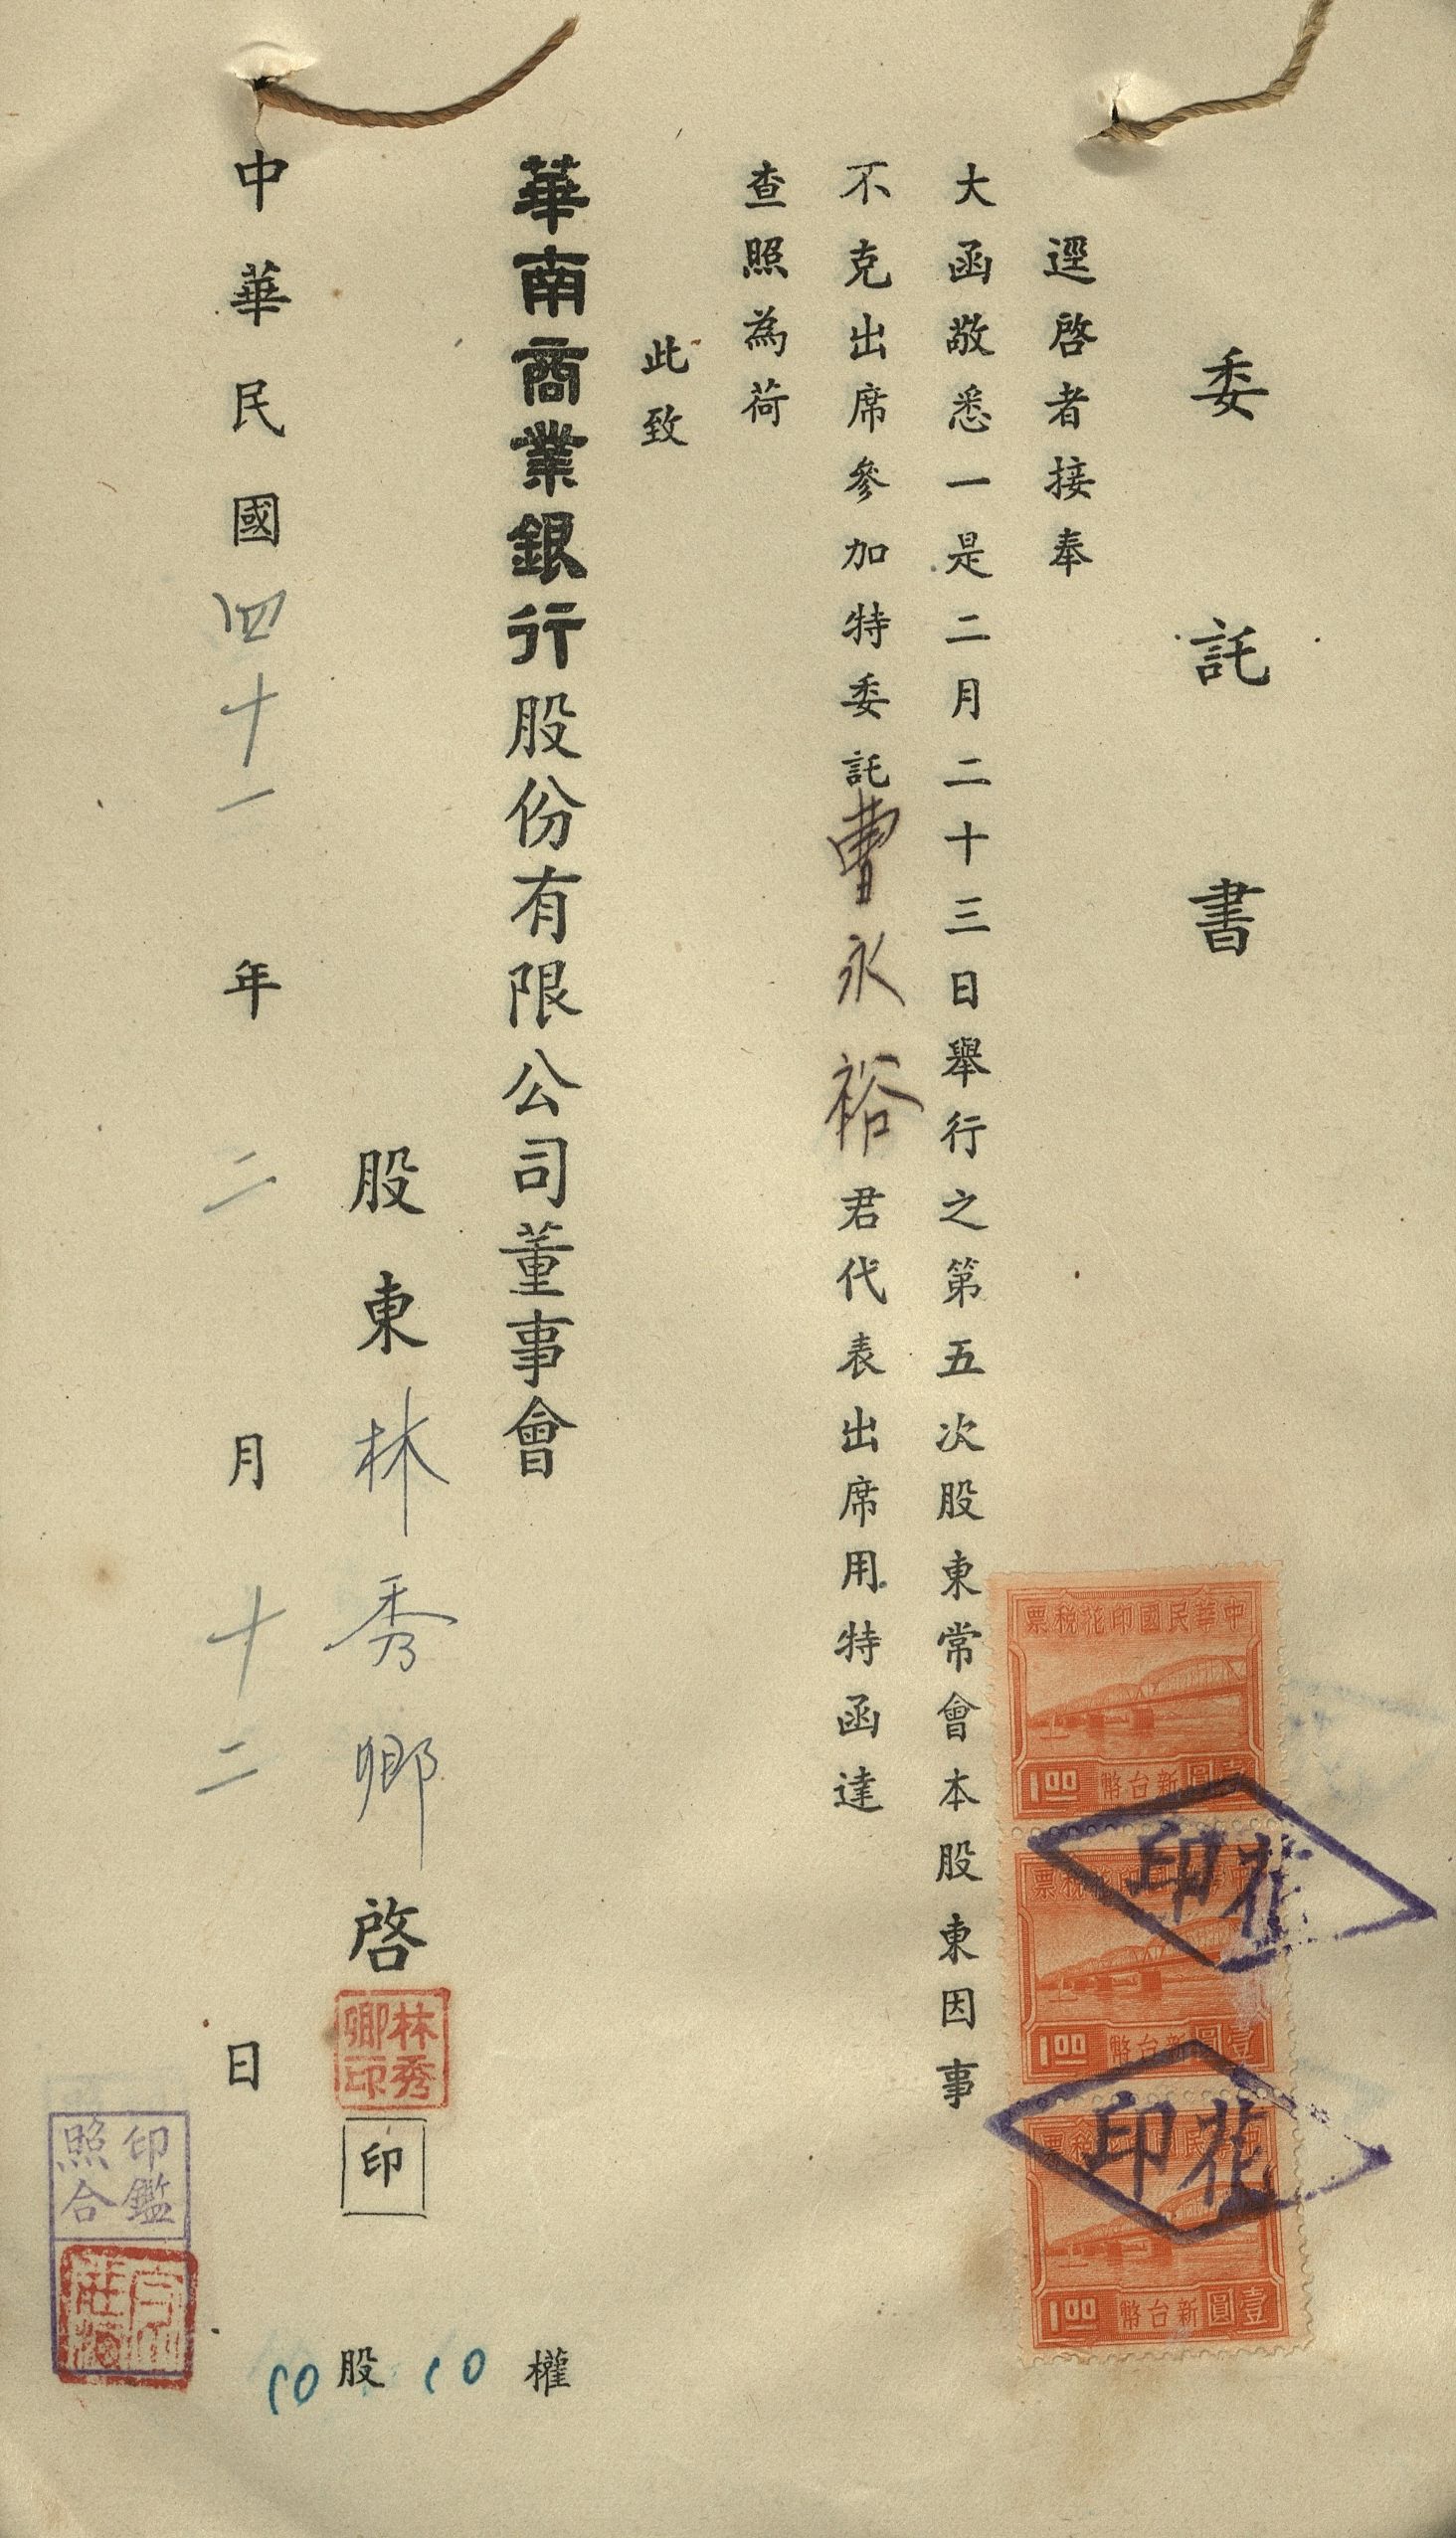 委託書
逕啓者接奉
大函敬悉一是二月二十三日舉行之第五次股東常會本股東因事
不克出席參加特委託曹永裕君代表出席用特函達
查照為荷
此致
華南商業銀行股份有限公司董事會
股東林秀卿啓
林秀卿印
印
中華民國四十一年二月十二日
10股10權
印鑑照合
中華民國印花稅票
新台幣壹圓
1.00
中華民國印花稅票
新台幣壹圓
1.00
中華民國印花稅票
新台幣壹圓
1.00
花印
花印